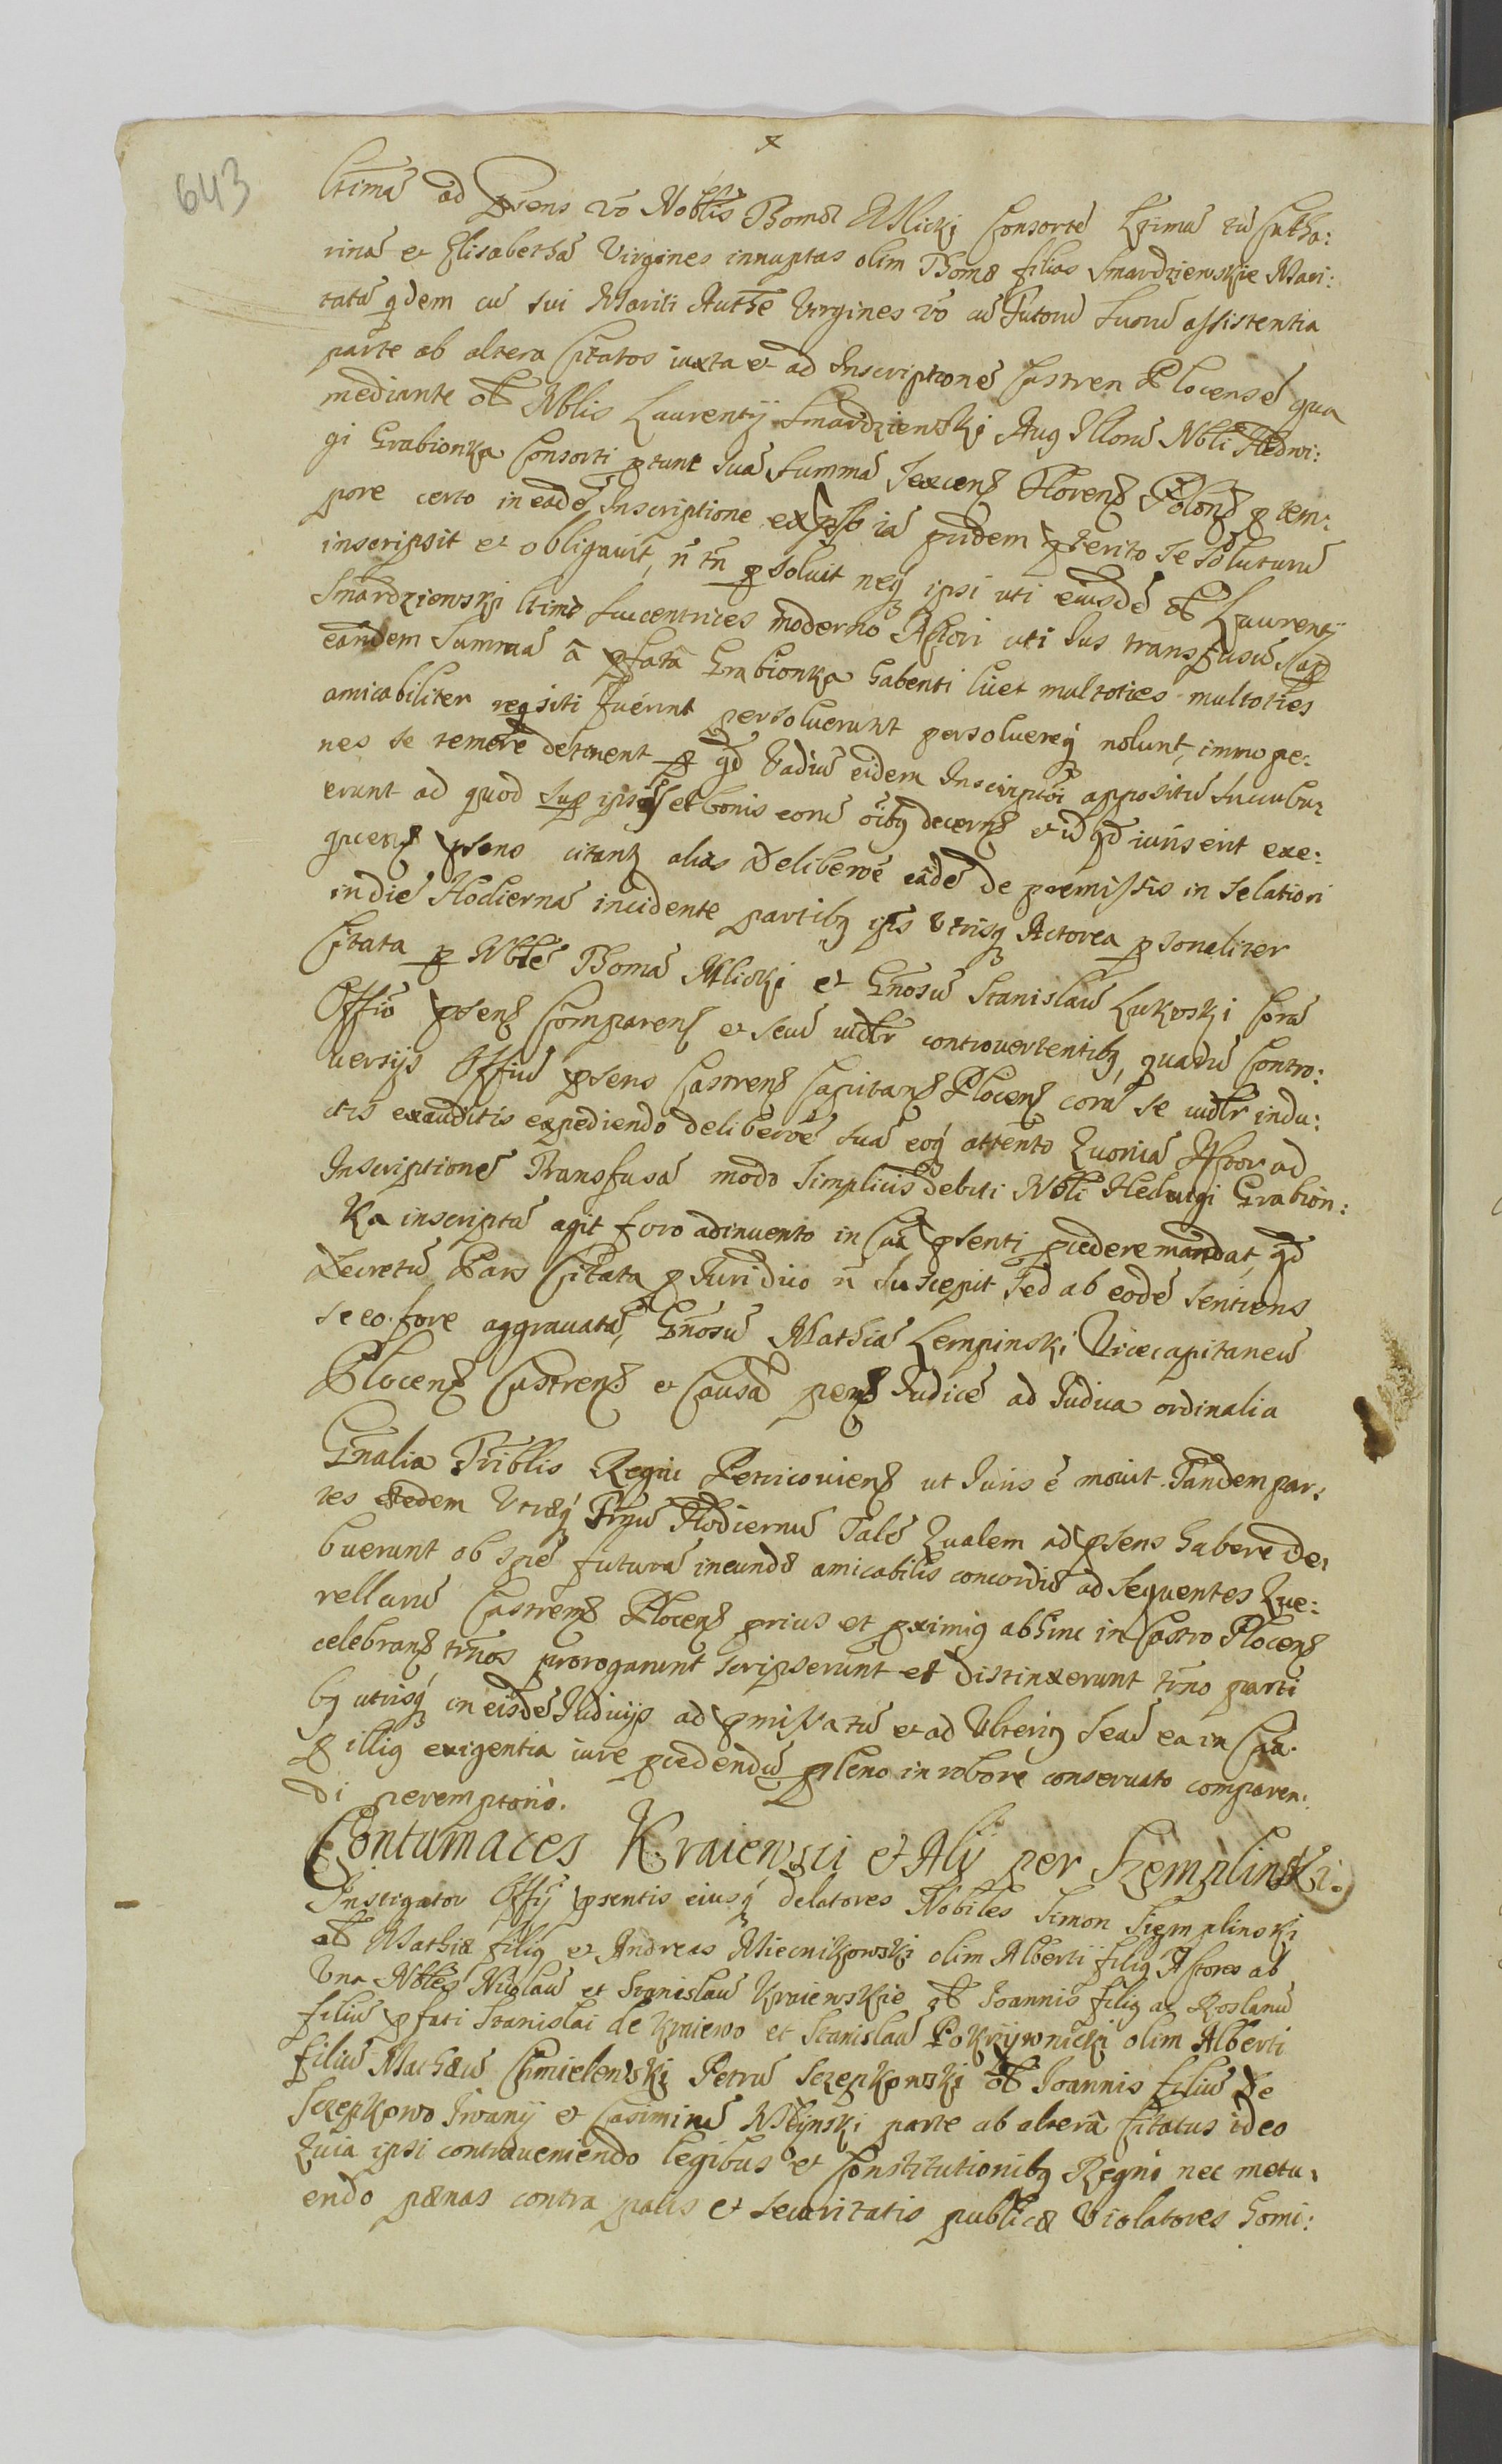 643
ltimã ad Prens vo Noblis Thomæ Mlicki Consortẽ Ltimã tũ Catha:
rinã et Elisabethã Virgines innuptas olim Thomæ filias Smardziewskie Mari:
tatã qdem cũ sui Mariti Authe Virgines vo cũ Tutorũ suorũ assistentia
parte ab altera Citatos iuxta et ad Inscriptionẽ Castren Plocensẽ qua
mediante olt Nblis Laurentij Smardziewski Aug Illorũ Nbli Hedwi:
gi Grabionka Consorti ptunc suæ Summã Sexcenꝫ Florenꝫ Polonꝫ p tem:
pore certo in eadẽ Inscriptione expsso iã pridem pterito se soluturũ
inscripsit et obligauit, ñ tñ psoluit neqꝫ ipsi uti eiusdẽ olt Laurentij
Smardziewski ltime Succentrices moderno Actori uti Ius transfusũ sup
eandem Summã â pfata Grabionka habenti licet multoties multoties
amicabiliter reqsiti fuerint persoluerunt persoluereqꝫ nolunt, immo pe:
nes se temere detinent p qd Vadiũ eidem Inscriptioi appositũ succubu:
erunt ad quod sup ipsis et bonis eorũ oibꝫ decernꝫ et id qd iuris erit exe:
quenꝫ psens citanꝫ alias Deliberoẽ eadẽ de premissis in Relatiori
in diẽ Hodiernã incidente partibꝫ ijs Vtrisqꝫ Actorea psonaliter
Citata p Nblẽ Thomã Mlicki et Gnosũ Stanislaũ Lukoski Corã
Offio psenꝫ Comparenꝫ et secũ iudlr controuertentibꝫ, quarũ Contro:
uersijs Offiũ psens Castrenꝫ Capitanꝫ Plocenꝫ corã se iudlr indu:
ctis exauditis expediendo deliberoẽ suã eoqꝫ attento Quoniã Actor ad
Inscriptionẽ Transfusã modo Simplicis debiti Nbli Hedwigi Grabion:
ka inscriptã agit foro adinuento in Cãa psenti pcedere mandat, qd
Decretũ Pars Citata p Iuridico ñ suscepit sed ab eodẽ sentiens
se eo fore aggrauatã, Gnosũ Mathiã Lempinski Vicecapitaneũ
Plocenꝫ Castrenꝫ et Causæ pensꝫ Iudicẽ ad Iudicia ordinalia
Gnalia Triblis Regni Petricouienꝫ ut Iuris ẽ mouit. Tandem par:
tes eædem Vtræqꝫ Trnũ Hodiernũ Talẽ Qualem ad psens habere de:
buerunt ob spẽ futuræ ineundæ amicabilis concordiæ ad sequentes Que:
rellarũ Castrenꝫ Plocenꝫ prius et pximiꝯ abhinc in Castro Plocenꝫ
celebranꝫ trnos prorogarunt scripserunt et distinxerunt trno parti
bꝫ utrisqꝫ in eisdẽ Iudicijs ad pmissatũ et ad Vlteriꝯ secũ ea in Cãa
p illiꝯ exigentia iure pcedendũ pleno in robore conseruato comparen:
di peremptorio.
Contumaces Kraiewsci et Alij per Szemplinski.
Instigator Offij psentis eiusqꝫ delatores Nobiles Simon Szemplinski
olt Mathiæ filiꝯ et Andreas Miecnikowski olim Alberti filiꝯ Actores ab
Vna Nbles Nicolaũ et Stanislaũ Kraiewskie olt Joannis filiꝯ ac Roslanũ
filiũ pfati Stanislai de Kraiewo et Stanislaũ Pokrzywnicki olim Alberti
filiũ Mathæũ Chmielewski Petrũ Sczepkowski olt Joannis filiũ de
Sczepkowo Iwanij et Casimirũ Wstynski parte ab altera Citatus ideo
Quia ipsi contraueniendo legibus et Constitutionibꝫ Regni nec metu:
endo pænas contra pacis et securitatis publicæ Violatores homi: